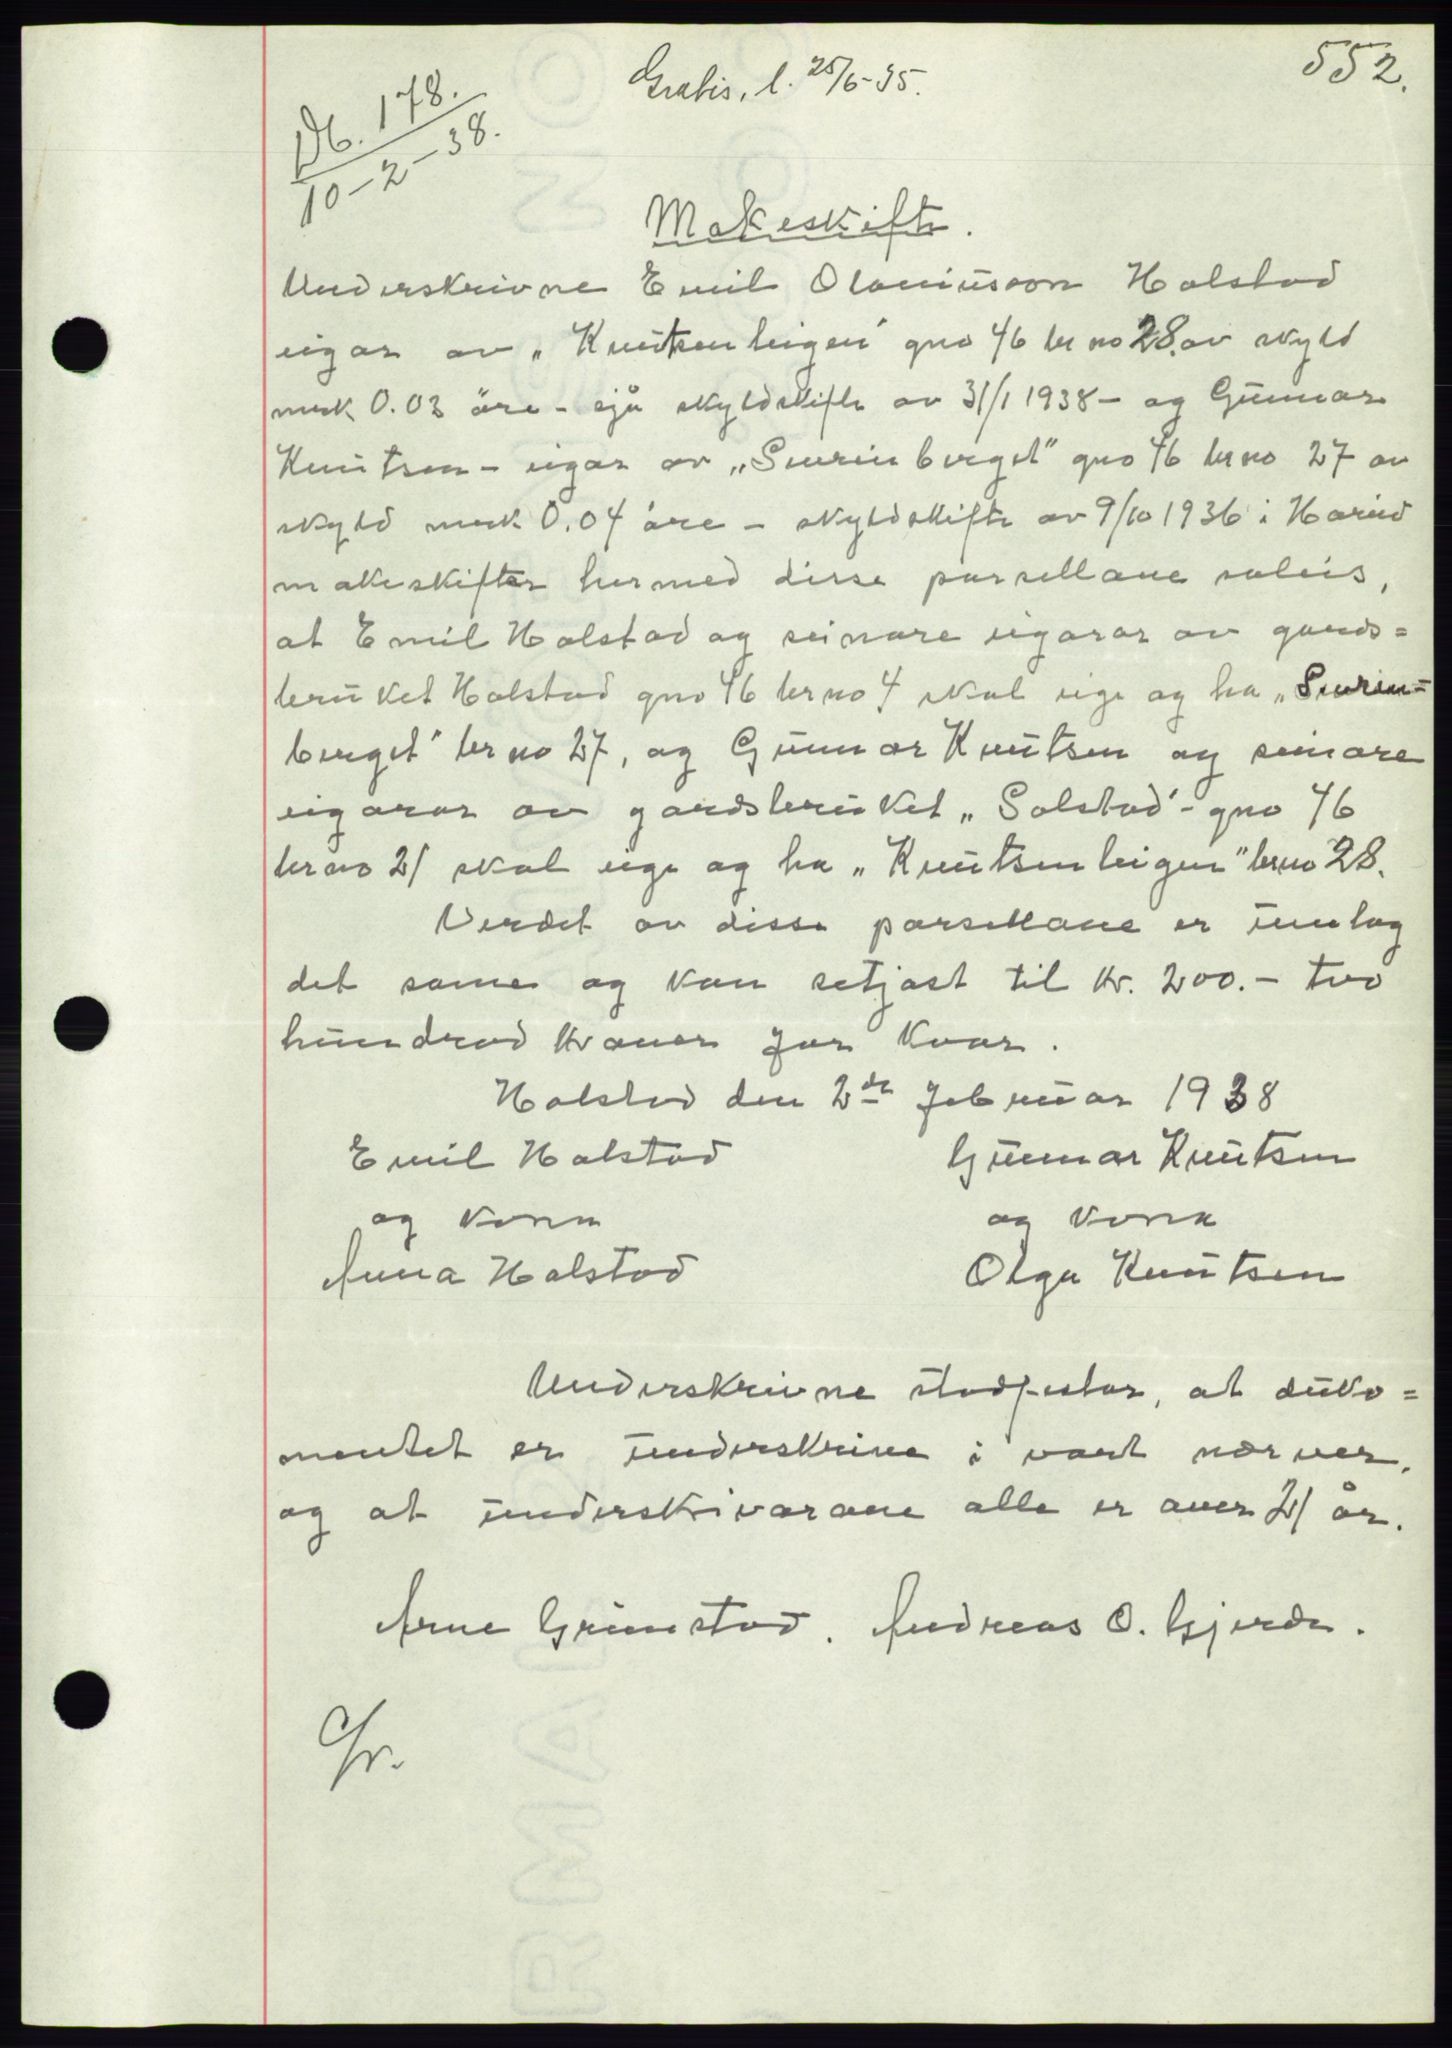 552.
Gratis, l. 25/6-35.
Db. 178.
10-2-38.
Makeskifte.
Underskrivne Emil Olaniusson Halstad
eigar av „Knutsenteigen" gno 46 br no 28. av skyld
mrk 0.03 øre - sjå skyldskifte av 31/1 1938 - og Gunnar
Knutsen - eigar av „Smørinberget" gno 46 br no 27 av
skyld mrk 0.04 øre - skyldskifte av 9/10 1936 i Hareid
makeskifter hermed disse parsellane soleis,
at Emil Halstad og seinare eigarar av gards=
bruket Halstad gno 46 br no 4 skal eige og ha „Smørin=
berget" br no 27, og Gunnar Knutsen og seinare
eigarar av gardsbruket „Solstad" - gno 46
br no 21 skal eige og ha „Knutsenteigen" br no 28.
Verdet av disse parsellane er umlag
det same og kan setjast til kr. 200.- two
hundrad kroner for kvar.
Halstad den 2de februar 1938
Emil Halstad Gunnar Knutsen
og kona og kona
Anna Halstad Olga Knutsen
Underskrivne stadfestar, at doku=
mentet er underskrive i vart nærver,
og at underskrivarane alle er over 21 år.
Arne Grimstad. Andreas O. Gjerde.